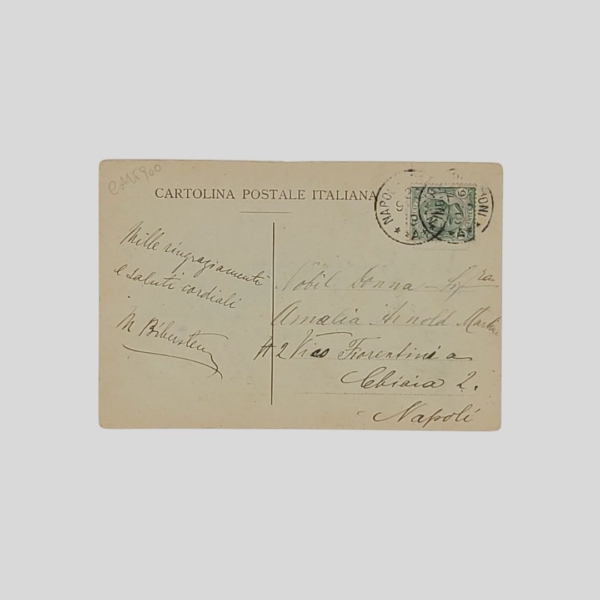 CARTOLINA POSTALE ITALIANA
NAPOLI
Mille ringraziamenti
e saluti cordiali
M Biberstein
Nobil Donna - Sig ra
Amalia Arnold
2 Vico Fiorentine a
Chiaia 2.
Napoli